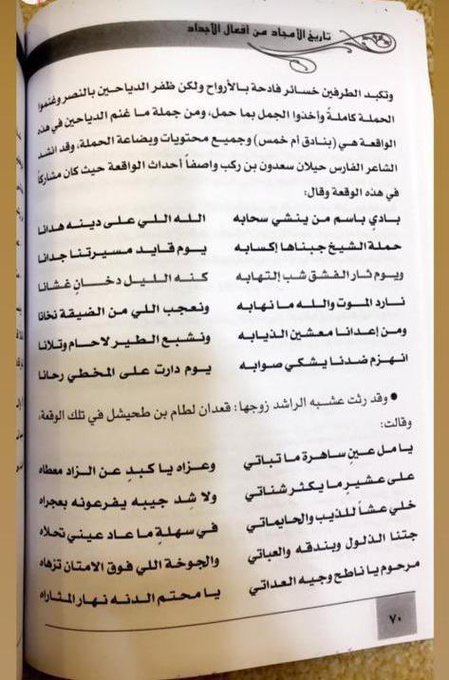 تاريخ الأمجاد من أفعال الأجداد
وتكبد الطرفين خسائر فادحة بالأرواح ولكن ظفر الدياحين بالنصر وغنموا
الحملة كاملةً وأخذوا الجمل بما حمل، ومن جملة ما غنم الدياحين في هذه
الواقعة هي (بنادق أم خمس) وجميع محتويات وبضاعة الحملة، وقد انشد
الشاعر الفارس حيلان سعدون بن ركب واصفاً أحداث الواقعة حيث كان مشاركاً
في هذه الوقعة وقال:
بادي باسم من ينشي سحابه الله اللي على دينه هدانا
حملة الشيخ جبناها إكسابه يوم قايد مسيرتنا جدانا
ويوم ثار الفشق شب إلتهابه كنه الليل دخانٍ غشانا
نارد الموت والله ما نهابه ونعجب اللي من الضيقة نخانا
ومن إعدانا معشين الذيابه ونشبع الطير لاحام وتلانا
انهزم ضدنا يشكي صوابه يوم دارت على المخطي رحانا
● وقد رثت عشبه الراشد زوجها: قعدان لطام بن طحيشل في تلك الوقعة،
وقالت:
يا مل عينٍ ساهرة ما تباتي وعزاه يا كبدٍ عن الزاد معطاه
على عشيرٍ ما يكثر شناتي ولا شِد جيبه يفرعونه بعجراه
خلي عشاً للذيب والحايماتي في سهلةٍ ما عاد عيني تحلاه
جتنا الذلول وبندقه والعباتي والجوخة اللي فوق الامتان تزهاه
مرحوم يا ناطح وجيه العداتي يا محتم الدنه نهار المثاراه
٧٠